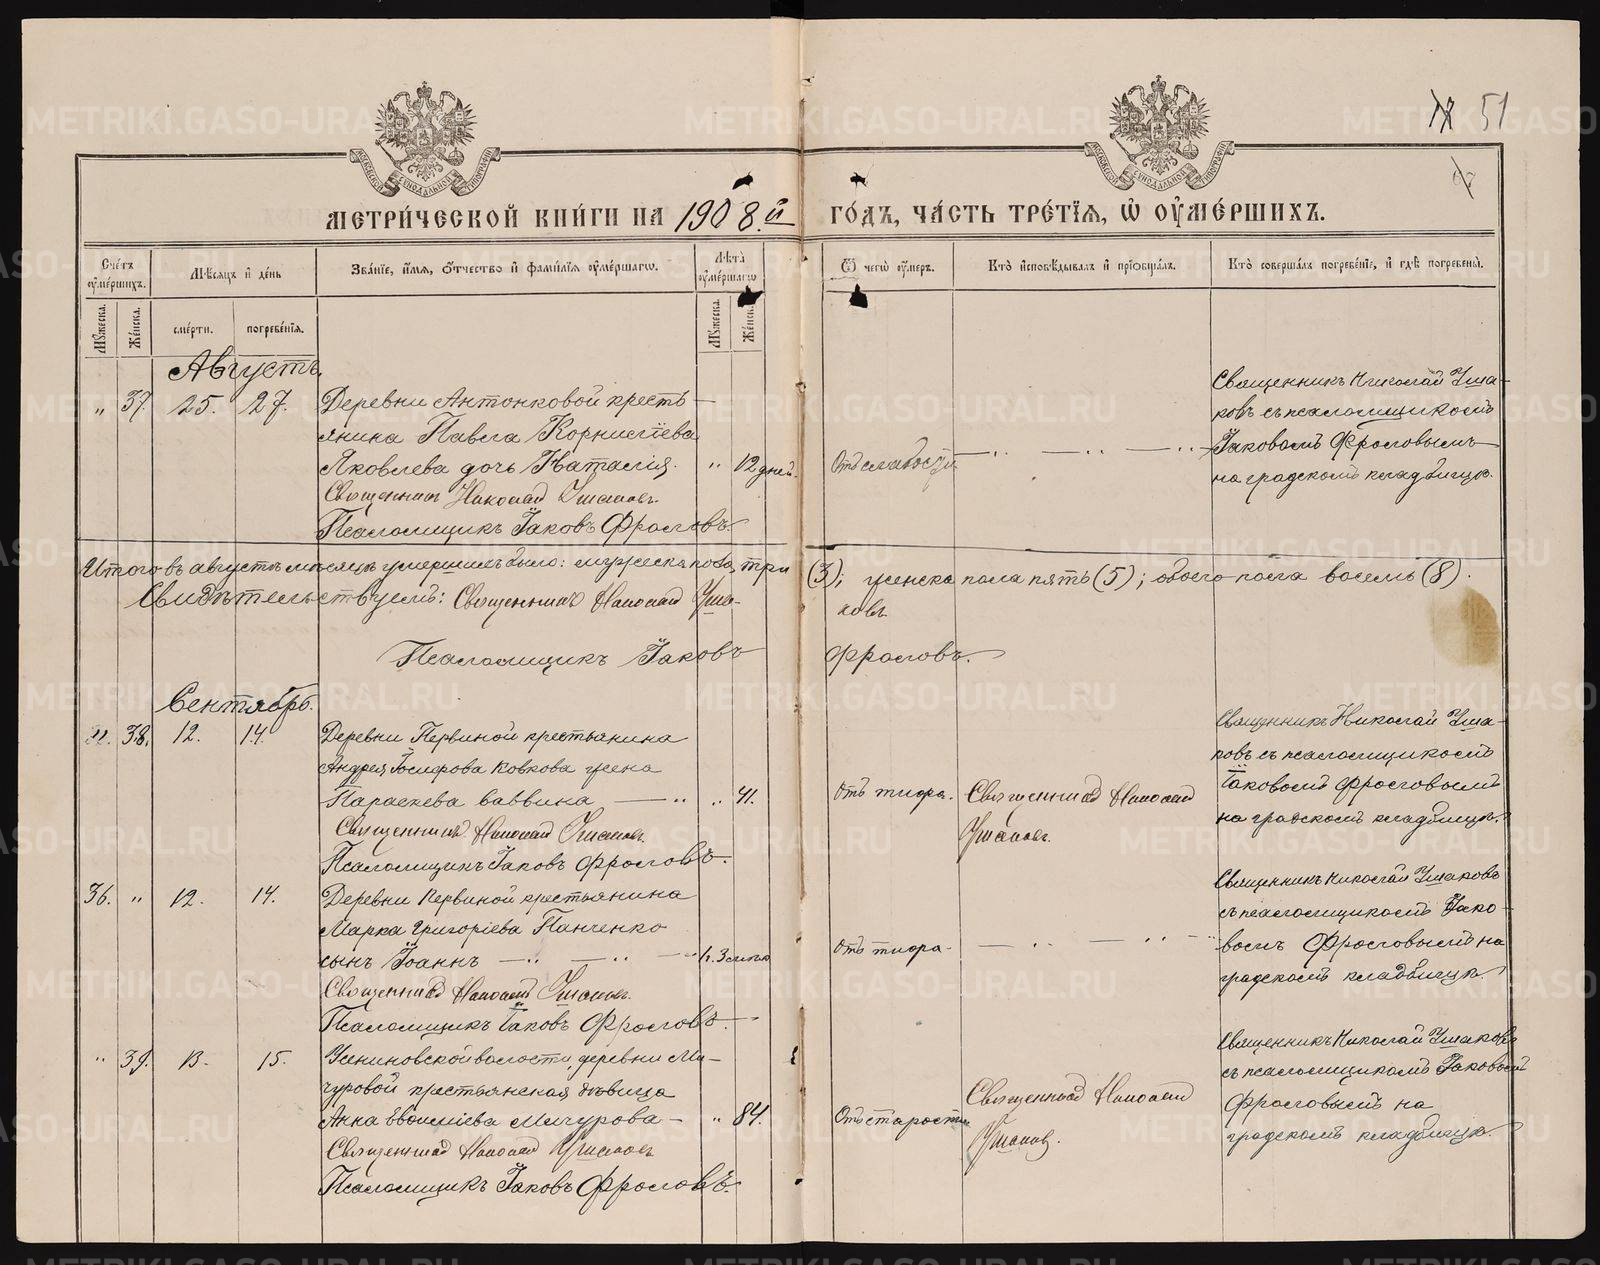 18 51
МЕТРИЧЕСКОЙ КНИГИ НА 1908.й ГОДЪ, ЧАСТЬ ТРЕТІЯ, Ѿ ОУМЕРШИХЪ.
МОСКОВСКОЙ СИНОДАЛЬНОЙ ТИПОГРАФІИ
МОСКОВСКОЙ СИНОДАЛЬНОЙ ТИПОГРАФІИ
Счётъ оумершихъ.
Мѣсяцъ и день
Званіе, имя, отчество и фамилія оумершагѡ.
Лѣта оумершагѡ
Ѿ чегѡ оумеръ.
Кто исповѣдывалъ и пріобщалъ.
Кто совершалъ погребеніе, и гдѣ погребены.
Мужеска.
Женска.
смерти.
погребенія.
Мужеска.
Женска.
Августъ.
" 37. 25. 27.
Деревни Антонковой кресть-
янина Павла Корнилiева
Яковлева дочь Наталiя. " 12 дней.
Священникъ Николай Ушаковъ.
Псаломщикъ Іаковъ Фроловъ.
Отъ слабости
Священникъ Николай Уша-
ковъ съ псаломщикомъ
Іаковомъ Фроловымъ
на градскомъ кладбищѣ.
Итого въ августѣ мѣсяцѣ умершихъ было: мужеска пола три (3); женска пола пять (5); обоего пола восемь (8).
Свидѣтельствуемъ: Священникъ Николай Уша-
ковъ
Псаломщикъ Іаковъ Фроловъ.
Сентябрь.
". 38. 12. 14.
Деревни Первиной крестьянина
Андрея Іосифова Ковкова жена
Параскева Саввина " 41.
Священникъ Николай Ушаковъ.
Псаломщикъ Іаковъ Фроловъ.
Отъ тифа.
Священникъ Николай
Ушаковъ.
Священникъ Николай Уша-
ковъ съ псаломщикомъ
Іаковомъ Фроловымъ
на градскомъ кладбищѣ.
36. " 12. 14.
Деревни Первиной крестьянина
Марка Григорiева Панченко
сынъ Іоаннъ
Священникъ Николай Ушаковъ.
Псаломщикъ Іаковъ Фроловъ.
Отъ тифа.
Священникъ Николай Ушаковъ
съ псаломщикомъ Іако-
вомъ Фроловымъ на
градскомъ кладбищѣ.
" 39. 13. 15.
волости, деревни Ми-
чуровой крестьянская дѣвица
Анна Мичурова " 84.
Священникъ Николай Ушаковъ
Псаломщикъ Іаковъ Фроловъ.
Отъ старости
Священникъ Николай
Ушаковъ.
Священникъ Николай Ушаковъ
съ псаломщикомъ Іаковомъ
Фроловымъ на
градскомъ кладбищѣ.
METRIKI.GASO-URAL.RU